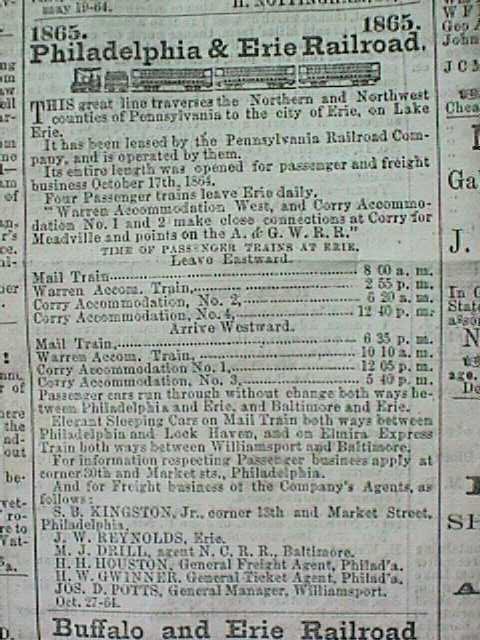 may 19-64.
1865. 1865.
Philadelphia & Erie Railroad.
THIS great line traverses the Northern and Northwest
counties of Pennsylvania to the city of Erie, on Lake
Erie.
It has been leased by the Pennsylvania Railroad Com-
pany, and is operated by them.
Its entire length was opened for passenger and freight
business October 17th, 1864.
Four Passenger trains leave Erie daily.
"Warren Accommodation West, and Corry Accommo-
dation No. 1 and 2 make close connections at Corry for
Meadville and points on the A. & G. W. R. R."
TIME OF PASSENGER TRAINS AT ERIE.
Leave Eastward.
Mail Train 8 00 a. m.
Warren Accom. Train, 2 55 p. m.
Corry Accommodation, No. 2, 6 20 a. m.
Corry Accommodation, No. 4, 12 40 p. m.
Arrive Westward.
Mail Train, 6 35 p. m.
Warren Accom. Train, 10 10 a. m.
Corry Accommodation No. 1, 12 05 p. m.
Corry Accommodation No. 3, 5 40 p. m.
Passenger cars run through without change both ways be-
tween Philadelphia and Erie, and Baltimore and Erie.
Elegant Sleeping Cars on Mail Train both ways between
Philadelphia and Lock Haven, and on Elmira Express
Train both ways between Williamsport and Baltimore.
For information respecting Passenger business apply at
corner 30th and Market sts., Philadelphia.
And for Freight business of the Company's Agents, as
follows:
S. B. KINGSTON, Jr., corner 13th and Market Street,
Philadelphia.
J. W. REYNOLDS, Erie.
M. J. DRILL, agent N. C. R. R., Baltimore.
H. H. HOUSTON, General Freight Agent, Philad'a.
H. W. GWINNER, General Ticket Agent, Philad'a.
JOS. D. POTTS, General Manager, Williamsport.
Oct. 27-64.
Buffalo and Erie Railroad